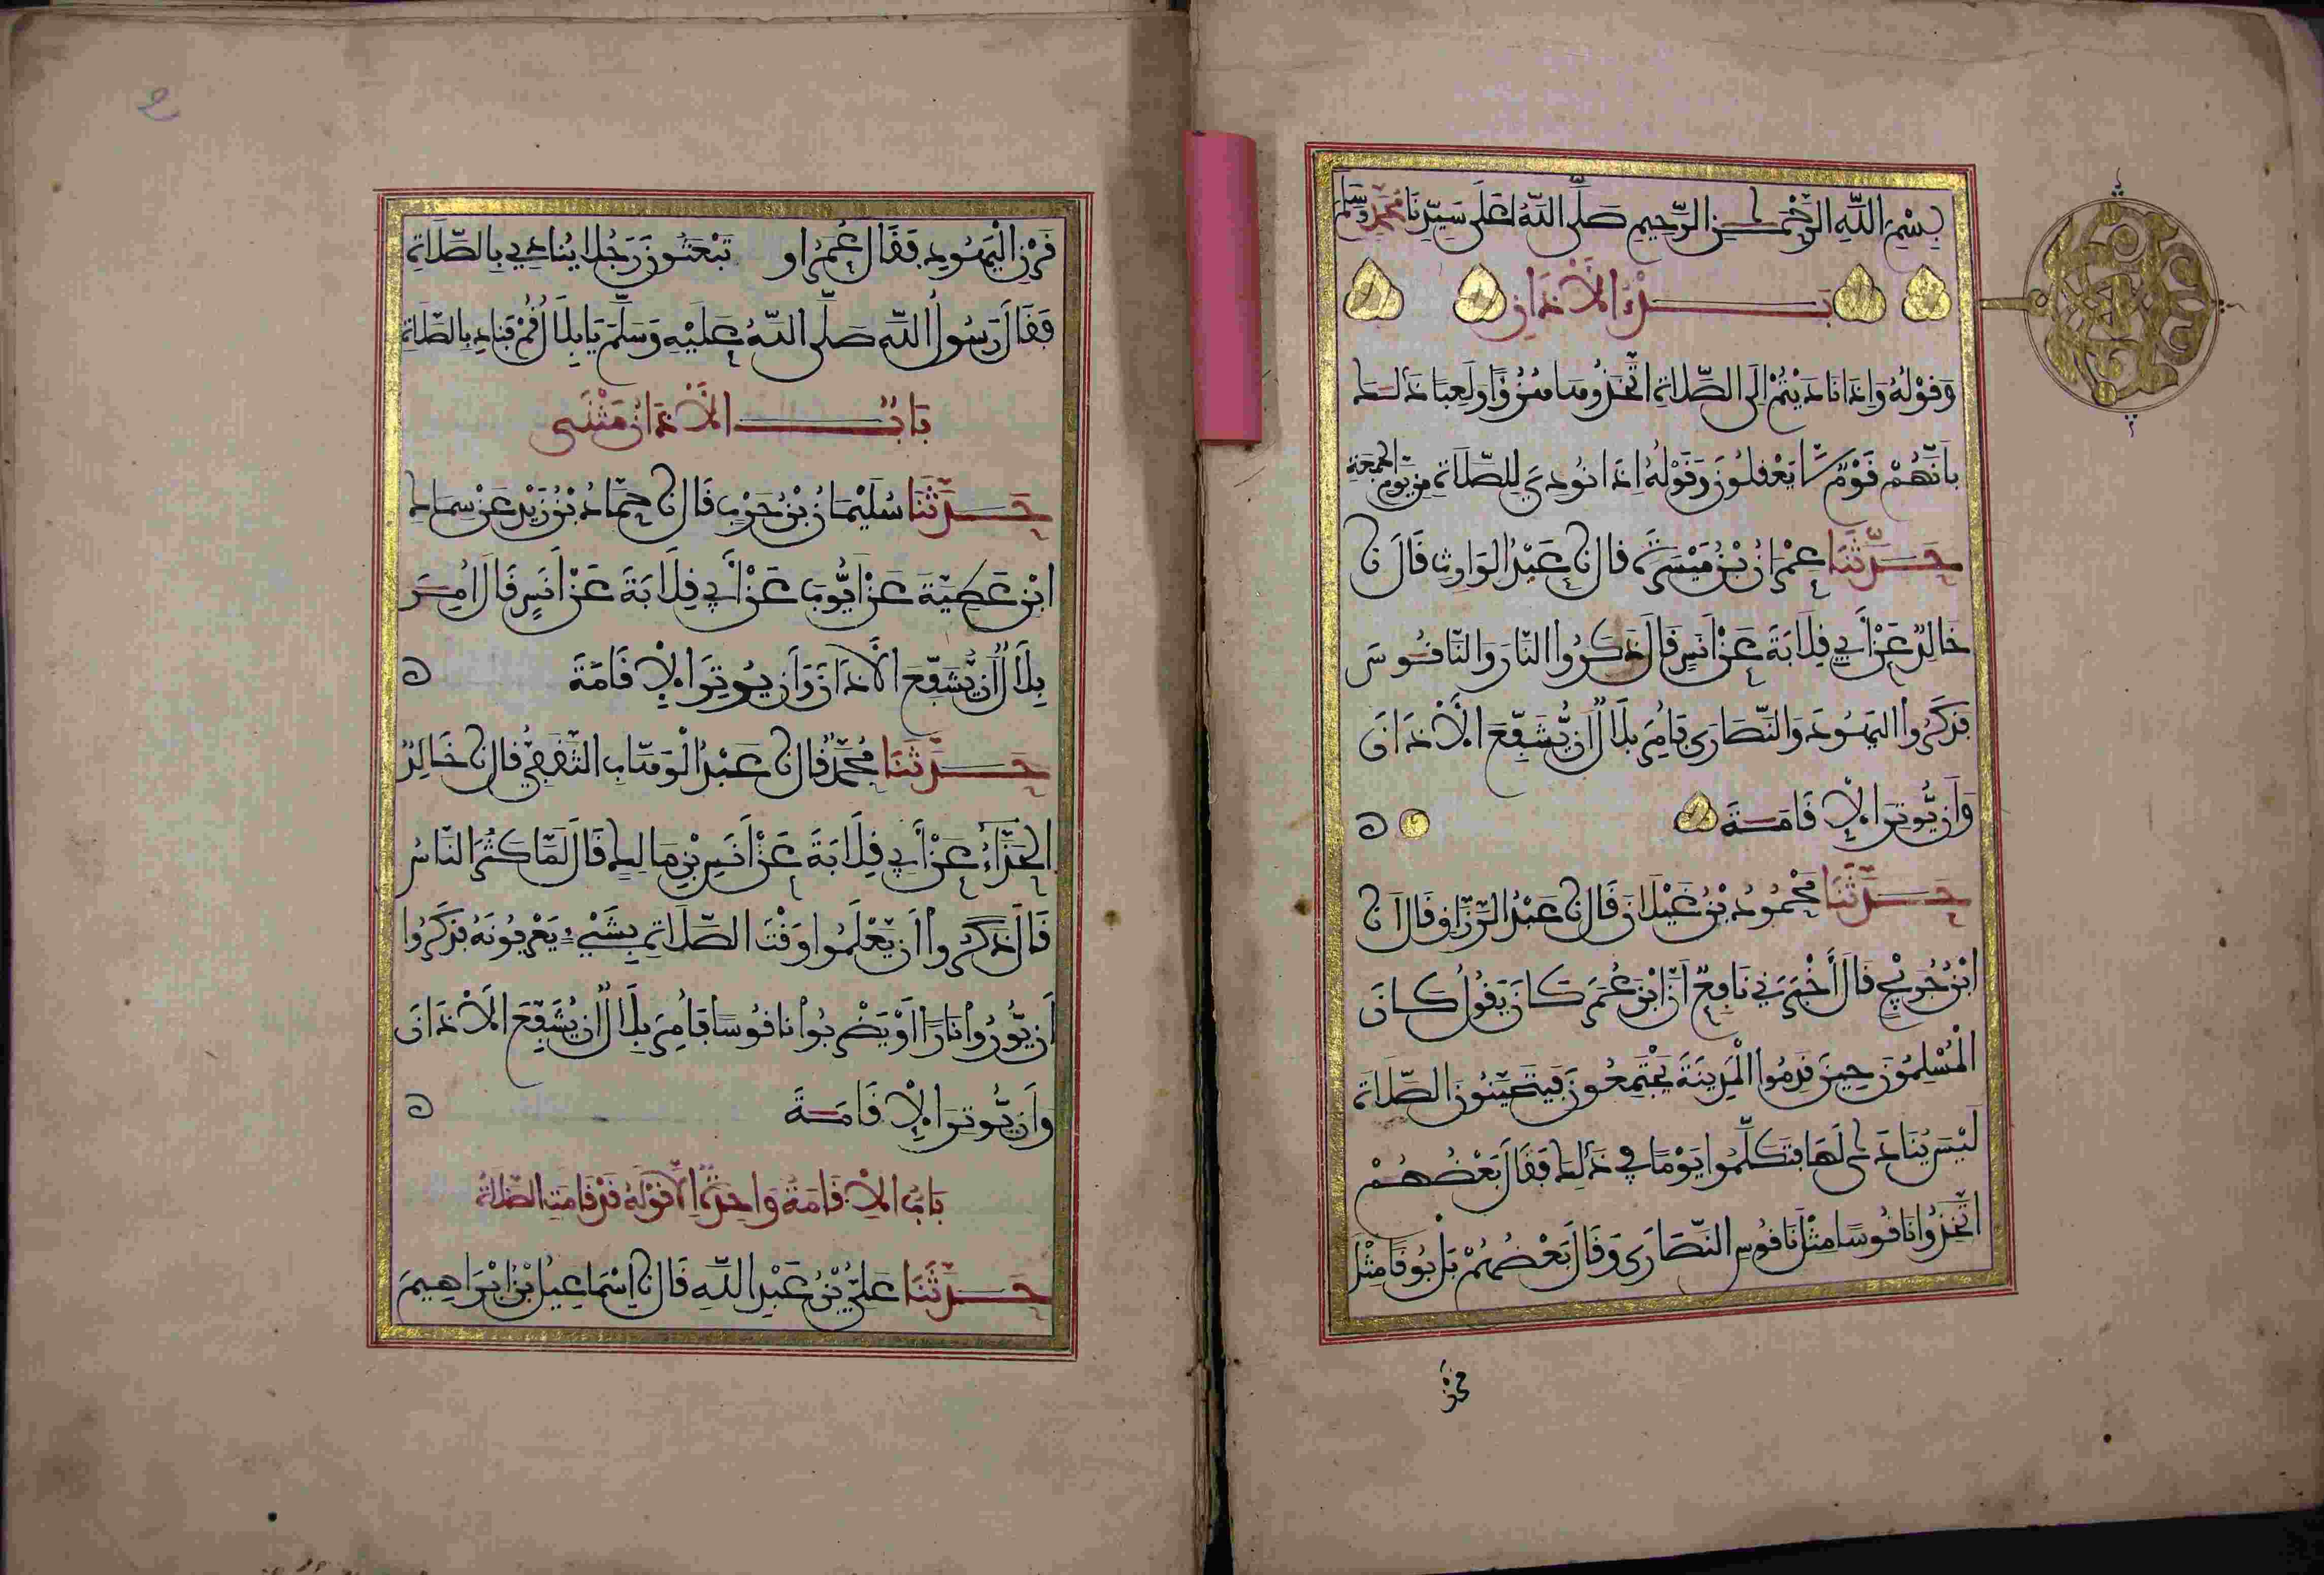 بِسْمِ اللَّهِ الرَّحْمَٰنِ الرَّحِيمِ صَلَّى اللَّهُ عَلَى سَيِّدِنَا مُحَمَّدٍ وَسَلَّمَ
بَدْءُ الْأَذَانِ
وَقَوْلُهُ وَإِذَا نَادَيْتُمْ إِلَى الصَّلَاةِ اتَّخَذُوهَا هُزُؤًا وَلَعِبًا ذَلِكَ
بِأَنَّهُمْ قَوْمٌ لَّا يَعْقِلُونَ وَقَوْلُهُ إِذَا نُودِيَ لِلصَّلَاةِ مِن يَوْمِ الْجُمُعَةِ
حَدَّثَنَا عِمْرَانُ بْنُ مَيْسَرَةَ قَالَ نَا عَبْدُ الْوَارِثِ قَالَ نَا
خَالِدٌ عَنْ أَبِي قِلَابَةَ عَنْ أَنَسٍ قَالَ ذَكَرُوا النَّارَ وَالنَّاقُوسَ
فَذَكَرُوا الْيَهُودَ وَالنَّصَارَى فَأُمِرَ بِلَالٌ أَن يُّشَفِّعَ الْأَذَانَ
وَأَن يُّوتِرَ الْإِقَامَةَ
حَدَّثَنَا مَحْمُودُ بْنُ غَيْلَانَ قَالَ نَا عَبْدُ الرَّزَّاقِ قَالَ أَنَا
ابْنُ جُرَيْجٍ قَالَ أَخْبَرَنِي نَافِعٌ أَنَّ ابْنَ عُمَرَ كَانَ يَقُولُ كَانَ
الْمُسْلِمُونَ حِينَ قَدِمُوا الْمَدِينَةَ يَجْتَمِعُونَ فَيَتَحَيَّنُونَ الصَّلَاةَ
لَيْسَ يُنَادَى لَهَا فَتَكَلَّمُوا يَوْمًا فِي ذَلِكَ فَقَالَ بَعْضُهُمْ
اتَّخِذُوا نَاقُوسًا مِثْلَ نَاقُوسِ النَّصَارَى وَقَالَ بَعْضُهُمْ بَلْ بُوقًا مِثْلَ
قَرْنِ الْيَهُودِ فَقَالَ عُمَرُ أَوَ تَبْعَثُونَ رَجُلًا يُنَادِي بِالصَّلَاةِ
فَقَالَ رَسُولُ اللَّهِ صَلَّى اللَّهُ عَلَيْهِ وَسَلَّمَ يَا بِلَالُ قُمْ فَنَادِ بِالصَّلَاةِ
بَابُ الْأَذَانِ مَثْنَى
حَدَّثَنَا سُلَيْمَانُ بْنُ حَرْبٍ قَالَ نَا حَمَّادُ بْنُ زَيْدٍ عَنْ سِمَاكِ
ابْنِ عَطِيَّةَ عَنْ أَيُّوبَ عَنْ أَبِي قِلَابَةَ عَنْ أَنَسٍ قَالَ أُمِرَ
بِلَالٌ أَن يُّشَفِّعَ الْأَذَانَ وَأَن يُوتِرَ الْإِقَامَةَ
حَدَّثَنَا مُحَمَّدٌ قَالَ نَا عَبْدُ الْوَهَّابِ الثَّقَفِيُّ قَالَ نَا خَالِدٌ
الْحَذَّاءُ عَنْ أَبِي قِلَابَةَ عَنْ أَنَسِ بْنِ مَالِكٍ قَالَ لَمَّا كَثُرَ النَّاسُ
قَالَ ذَكَرُوا أَن يَّعْلَمُوا وَقْتَ الصَّلَاةِ بِشَيْءٍ يَعْرِفُونَهُ فَذَكَرُوا
أَن يُّورُوا نَارًا أَوْ يَضْرِبُوا نَاقُوسًا فَأُمِرَ بِلَالٌ أَن يُشَفِّعَ الْأَذَانَ
وَأَن يُّوتِرَ الْإِقَامَةَ
بَابُ الْإِقَامَةُ وَاحِدَةٌ إِلَّا قَوْلَهُ قَدْ قَامَتِ الصَّلَاةُ
حَدَّثَنَا عَلِيُّ بْنُ عَبْدِ اللَّهِ قَالَ نَا إِسْمَاعِيلُ بْنُ إِبْرَاهِيمَ